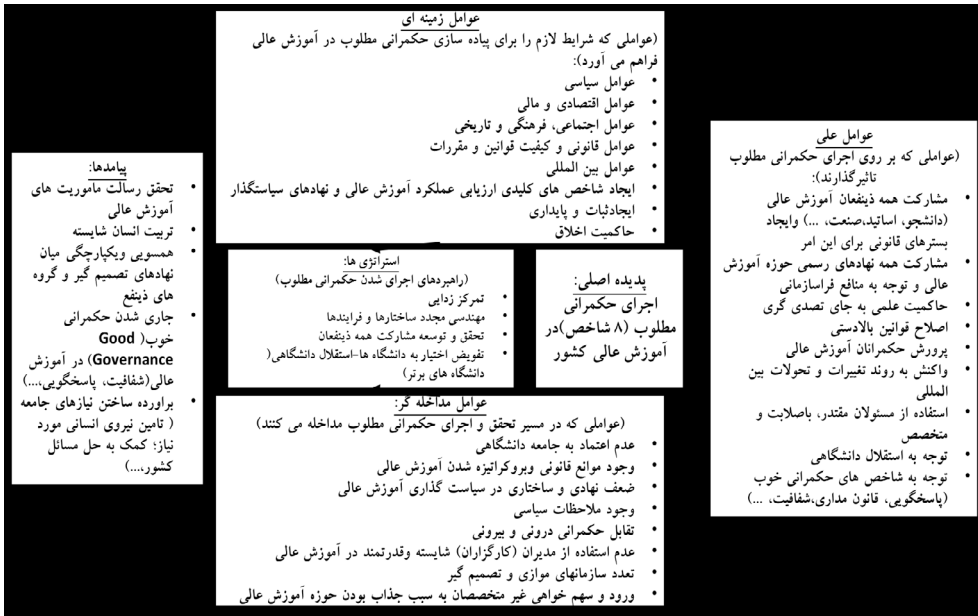 عوامل زمینه ای
(عواملی که شرایط لازم را برای پیاده سازی حکمرانی مطلوب در آموزش عالی
فراهم می آورد):
• عوامل سیاسی
• عوامل اقتصادی و مالی
• عوامل اجتماعی، فرهنگی و تاریخی
• عوامل قانونی و کیفیت قوانین و مقررات
• عوامل بین المللی
• ایجاد شاخص های کلیدی ارزیابی عملکرد آموزش عالی و نهادهای سیاستگذار
• ایجادثبات و پایداری
• حاکمیت اخلاق
عوامل علی
(عواملی که بر روی اجرای حکمرانی مطلوب
تاثیرگذارند):
• مشارکت همه ذینفعان آموزش عالی
(دانشجو، اساتید،صنعت، ...) وایجاد
بسترهای قانونی برای این امر
• مشارکت همه نهادهای رسمی حوزه آموزش
عالی و توجه به منافع فراسازمانی
• حاکمیت علمی به جای تصدی گری
• اصلاح قوانین بالادستی
• پرورش حکمرانان آموزش عالی
• واکنش به روند تغییرات و تحولات بین
المللی
• استفاده از مسئولان مقتدر، باصلابت و
متخصص
• توجه به استقلال دانشگاهی
• توجه به شاخص های حکمرانی خوب
(پاسخگویی، قانون مداری،شفافیت، ...)
پدیده اصلی:
اجرای حکمرانی
مطلوب (۸ شاخص)در
آموزش عالی کشور
استراتژی ها:
(راهبردهای اجرای شدن حکمرانی مطلوب)
• تمرکز زدایی
• مهندسی مجدد ساختارها و فرایندها
• تحقق و توسعه مشارکت همه ذینفعان
• تفویض اختیار به دانشگاه ها-استقلال دانشگاهی(
دانشگاه های برتر)
عوامل مداخله گر:
(عواملی که در مسیر تحقق و اجرای حکمرانی مطلوب مداخله می کنند)
• عدم اعتماد به جامعه دانشگاهی
• وجود موانع قانونی وبروکراتیزه شدن آموزش عالی
• ضعف نهادی و ساختاری در سیاست گذاری آموزش عالی
• وجود ملاحظات سیاسی
• تقابل حکمرانی درونی و بیرونی
• عدم استفاده از مدیران (کارگزاران) شایسته وقدرتمند در آموزش عالی
• تعدد سازمانهای موازی و تصمیم گیر
• ورود و سهم خواهی غیر متخصصان به سبب جذاب بودن حوزه آموزش عالی
پیامدها:
• تحقق رسالت ماموریت های
آموزش عالی
• تربیت انسان شایسته
• همسویی ویکپارچگی میان
نهادهای تصمیم گیر و گروه
های ذینفع
• جاری شدن حکمرانی
خوب( Good
Governance) در آموزش
عالی(شفافیت، پاسخگویی،...)
• براورده ساختن نیازهای جامعه
( تامین نیروی انسانی مورد
نیاز؛ کمک به حل مسائل
کشور،...)